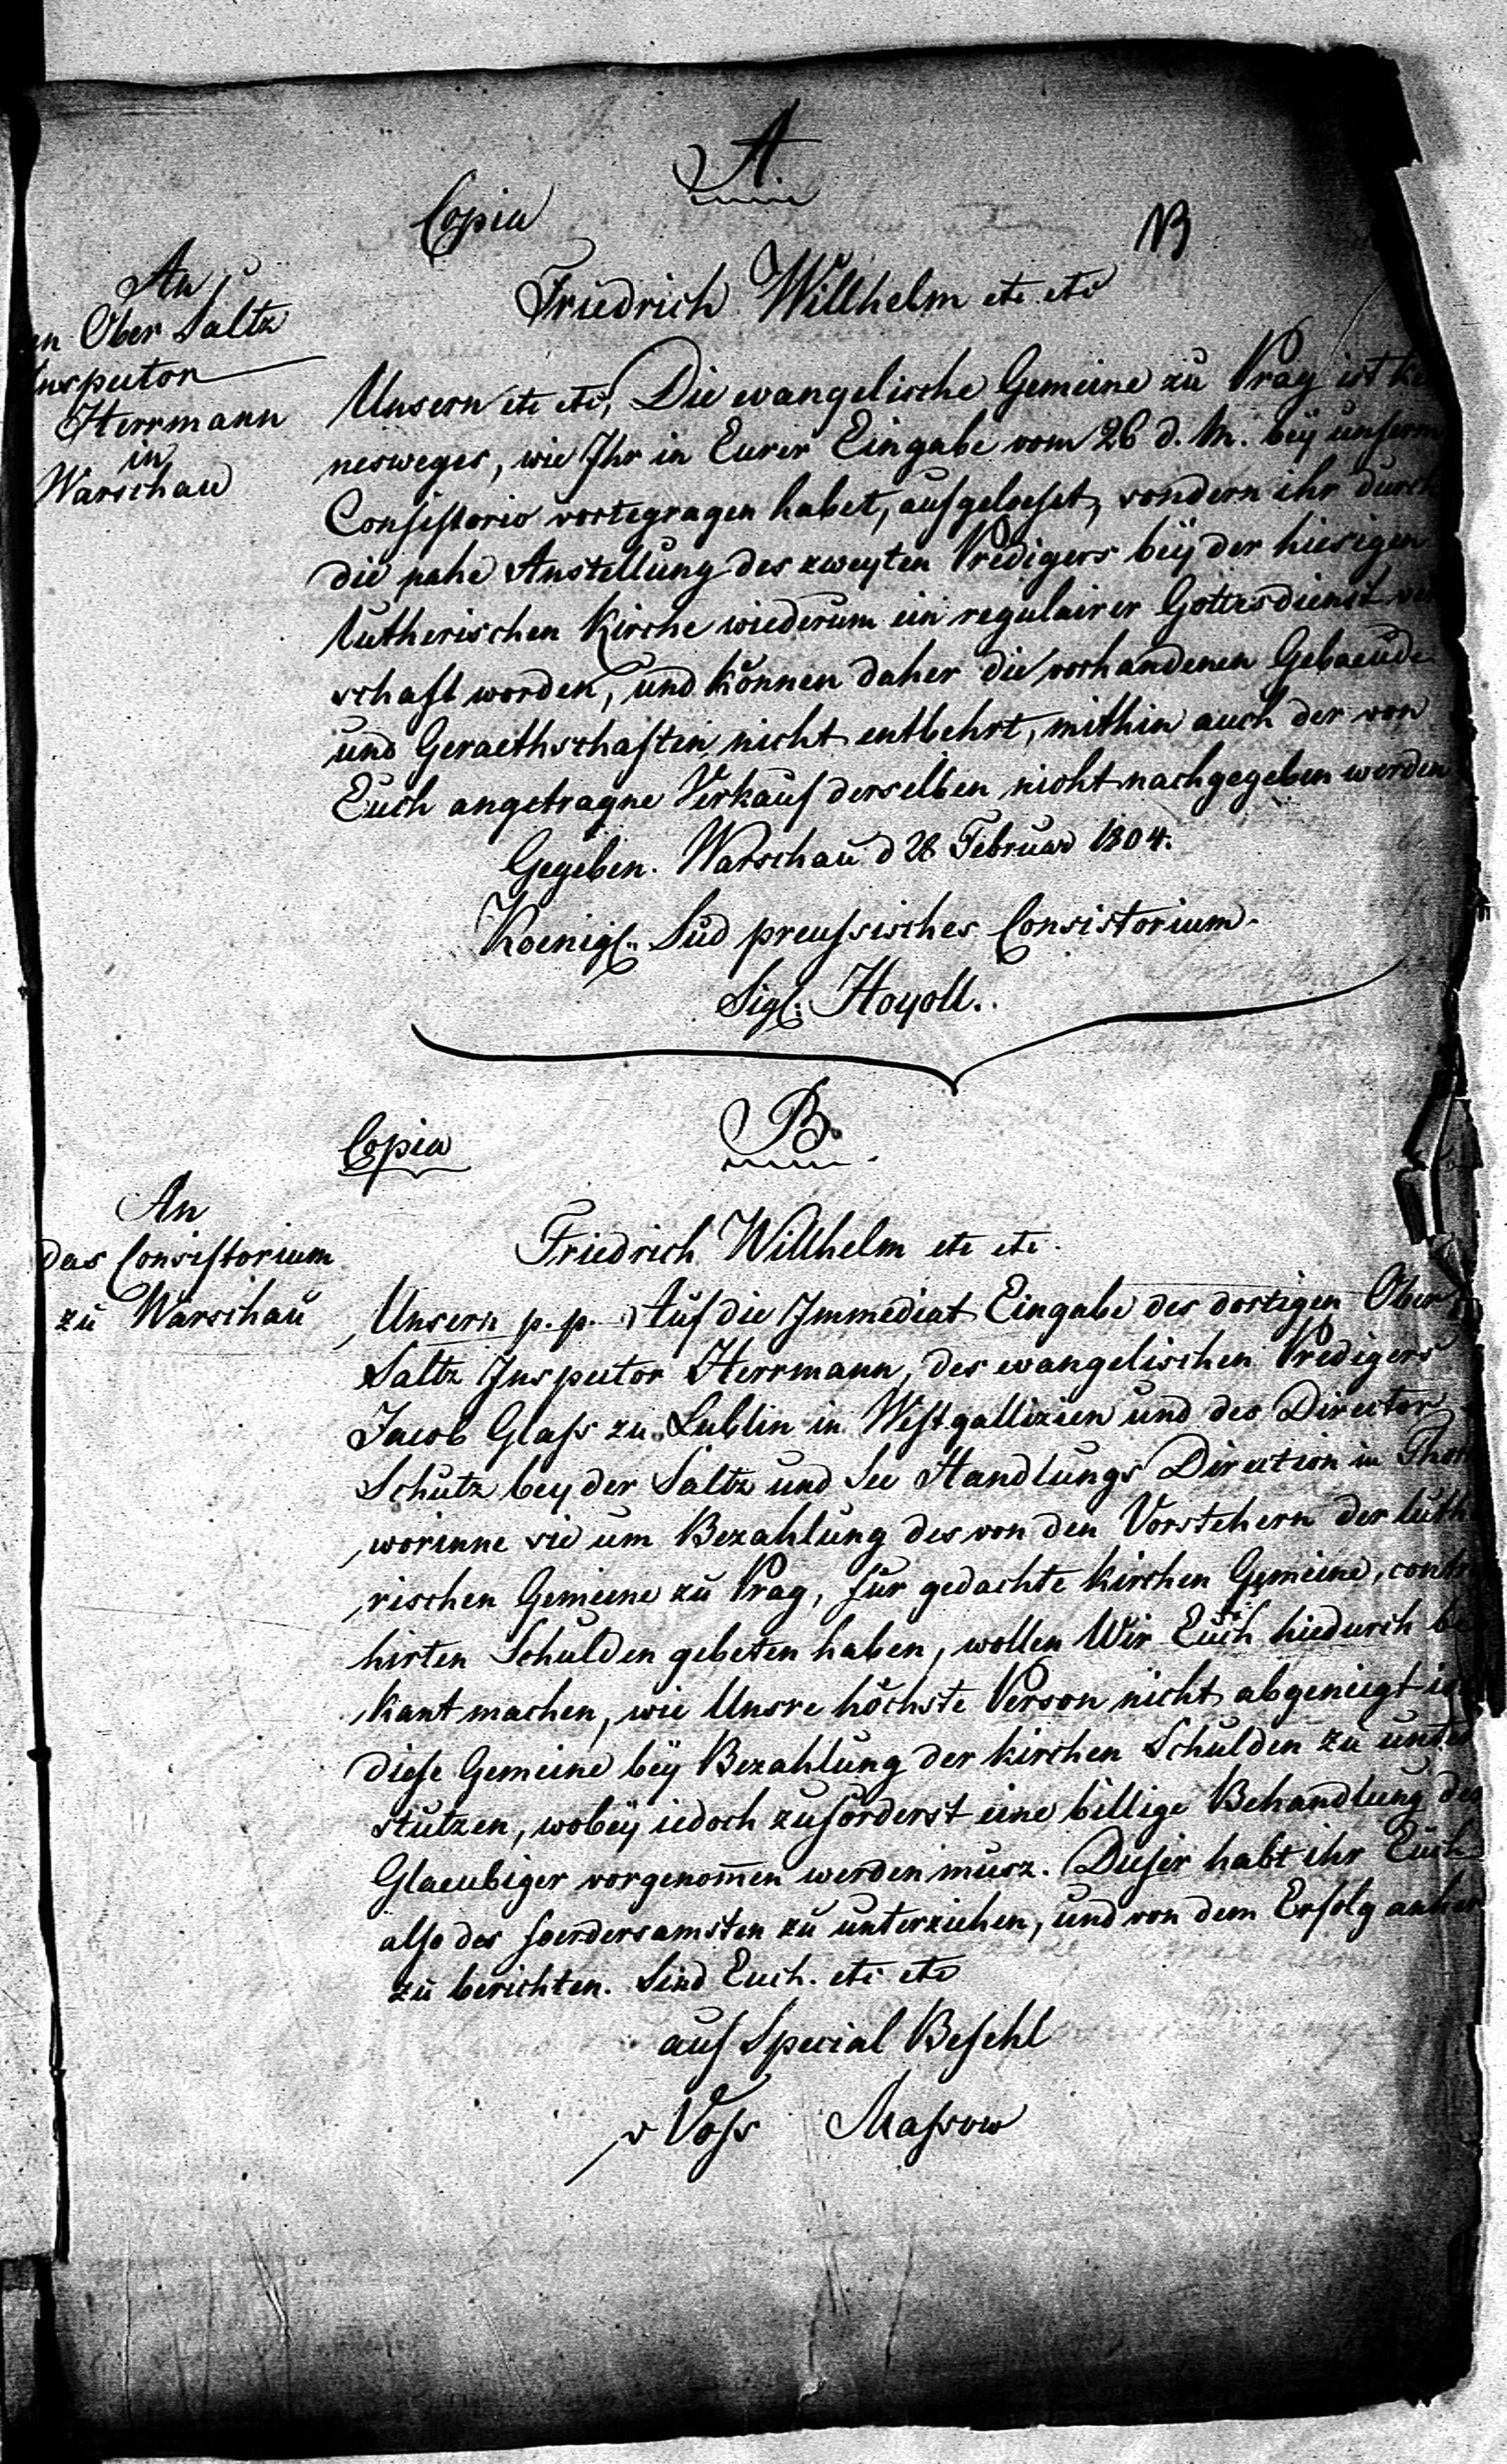 A.
Copia
NB
An
Ober Saltz
Inspector
Herrmann
in
Warschau
Friedrich Willhelm etc etc
Unsern etc etc, Die evangelische Gemeine zu Prag ist kei
nesweges, wie Ihr in Eurer Eingabe vom 26 d. M. beÿ unserm
Consistorio vortegragen habet, aufgeloeset, sondern ihr durch
die nahe Anstellung des zweyten Predigers beÿ der hiesigen
lutherischen Kirche wiederum ein regulairer Gottesdienst ver
schaft worden, und können daher die vorhandenen Gebaeude
und Geraethschaften nicht entbehrt, mithin auch der von
Euch angetragne Verkauf derselben nicht nachgegeben werden
Gegeben. Warschau d 28 Februar 1804.
Koenigl. Süd preussisches Consistorium.
Sigl: Hoyoll.
B.
Copia
An
das Consistorium
zu Warschau
Friedrich Willhelm etc etc.
Unsern p. p. Auf die Immediat Eingabe des dortigen Ober
Saltz Inspector Herrmann, des evangelischen Predigers
Jacob Glass zu Lublin in Westgallizien und des Director
Schutz bey der Saltz und See Handlungs Direction in Thorn
worinne sie um Bezahlung des von den Vorstehern der luthe
rischen Gemeine zu Prag, für gedachte Kirchen Gemeine, contra
hirten Schulden gebeten haben, wollen Wir Euch hiedurch be
kant machen, wie Unsre höchste Person nicht abgeneigt ist
diese Gemeine beÿ Bezahlung der Kirchen Schulden zu unter
stützen, wobeÿ iedoch zuförderst eine billige Behandlung der
Glaeubiger vorgenom̅en werden müsz. Dieser habt ihr Euch
also des foerdersamsten zu unterziehen, und von dem Erfolg anher
zu berichten. Sind Euch. etc etc
auf Special Befehl
v Voss Massow